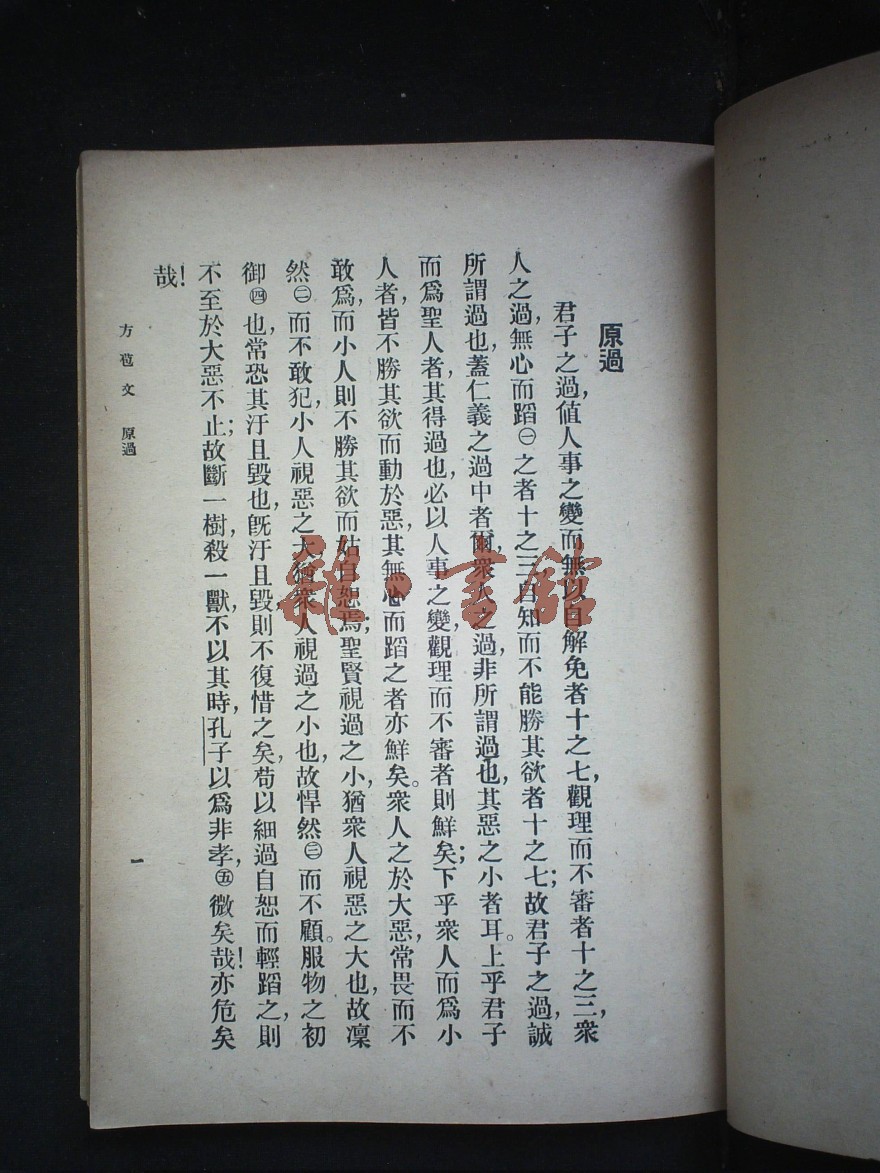 原過
君子之過，値人事之變而無以自解免者十之七，觀理而不審者十之三，衆
人之過，無心而蹈㊀之者十之三，自知而不能勝其欲者十之七；故君子之過，誠
所謂過也，蓋仁義之過中者爾。衆人之過，非所謂過也，其惡之小者耳。上乎君子
而爲聖人者，其得過也，必以人事之變，觀理而不審者則鮮矣；下乎衆人而爲小
人者，皆不勝其欲而動於惡，其無心而蹈之者亦鮮矣。衆人之於大惡，常畏而不
敢爲，而小人則不勝其欲而姑自恕焉；聖賢視過之小，猶衆人視惡之大也，故凜
然㊁而不敢犯，小人視惡之大，猶衆人視過之小也，故悍然㊂而不顧。服物之初
御㊃也，常恐其汙且毀也，旣汙且毀，則不復惜之矣，苟以細過自恕而輕蹈之，則
不至於大惡不止；故斷一樹，殺一獸，不以其時，孔子以爲非孝，㊄微矣哉！亦危矣
哉！
方苞文 原過
一
雜·書館